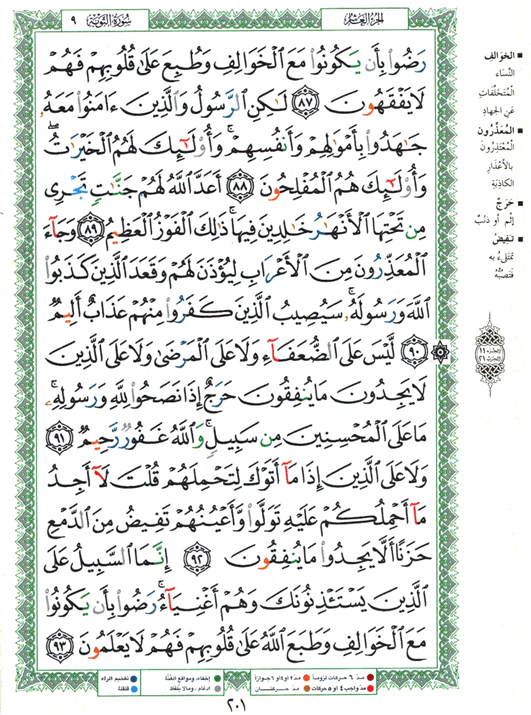 الجزء العاشر
سورة التوبة ٩
رَضُوا۟ بِأَن يَكُونُوا۟ مَعَ ٱلْخَوَالِفِ وَطُبِعَ عَلَىٰ قُلُوبِهِمْ فَهُمْ
لَا يَفْقَهُونَ ٨٧ لَـٰكِنِ ٱلرَّسُولُ وَٱلَّذِينَ ءَامَنُوا۟ مَعَهُۥ
جَـٰهَدُوا۟ بِأَمْوَٰلِهِمْ وَأَنفُسِهِمْ ۚ وَأُو۟لَـٰٓئِكَ لَهُمُ ٱلْخَيْرَٰتُ ۖ
وَأُو۟لَـٰٓئِكَ هُمُ ٱلْمُفْلِحُونَ ٨٨ أَعَدَّ ٱللَّهُ لَهُمْ جَنَّـٰتٍ تَجْرِى
مِن تَحْتِهَا ٱلْأَنْهَـٰرُ خَـٰلِدِينَ فِيهَا ۚ ذَٰلِكَ ٱلْفَوْزُ ٱلْعَظِيمُ ٨٩ وَجَآءَ
ٱلْمُعَذِّرُونَ مِنَ ٱلْأَعْرَابِ لِيُؤْذَنَ لَهُمْ وَقَعَدَ ٱلَّذِينَ كَذَبُوا۟
ٱللَّهَ وَرَسُولَهُۥ ۚ سَيُصِيبُ ٱلَّذِينَ كَفَرُوا۟ مِنْهُمْ عَذَابٌ أَلِيمٌ
٩٠ لَّيْسَ عَلَى ٱلضُّعَفَآءِ وَلَا عَلَى ٱلْمَرْضَىٰ وَلَا عَلَى ٱلَّذِينَ
لَا يَجِدُونَ مَا يُنفِقُونَ حَرَجٌ إِذَا نَصَحُوا۟ لِلَّهِ وَرَسُولِهِۦ ۚ
مَا عَلَى ٱلْمُحْسِنِينَ مِن سَبِيلٍ ۚ وَٱللَّهُ غَفُورٌ رَّحِيمٌ ٩١
وَلَا عَلَى ٱلَّذِينَ إِذَا مَآ أَتَوْكَ لِتَحْمِلَهُمْ قُلْتَ لَآ أَجِدُ
مَآ أَحْمِلُكُمْ عَلَيْهِ تَوَلَّوا۟ وَّأَعْيُنُهُمْ تَفِيضُ مِنَ ٱلدَّمْعِ
حَزَنًا أَلَّا يَجِدُوا۟ مَا يُنفِقُونَ ٩٢ إِنَّمَا ٱلسَّبِيلُ عَلَى
ٱلَّذِينَ يَسْتَـْٔذِنُونَكَ وَهُمْ أَغْنِيَآءُ ۚ رَضُوا۟ بِأَن يَكُونُوا۟
مَعَ ٱلْخَوَالِفِ وَطَبَعَ ٱللَّهُ عَلَىٰ قُلُوبِهِمْ فَهُمْ لَا يَعْلَمُونَ ٩٣
■ الخوالف
النّساء
المتخلّفات
عن الجهاد
■ المعذّرون
المعتذرون
بالأعذار
الكاذبة
■ حرج
إثم أو ذنب
■ تفيض
تمتلئ به
فتصبّه
الجزء ١١
الحزب ٢١
مدّ ٦ حركات لزوماً
مدّ ٢ أو ٤ أو ٦ جوازاً
مدّ واجب ٤ أو ٥ حركات
مدّ حركتان
إخفاء، ومواقع الغنّة
ادغام، وما لا يلفظ
تفخيم الراء
قلقلة
٢٠١